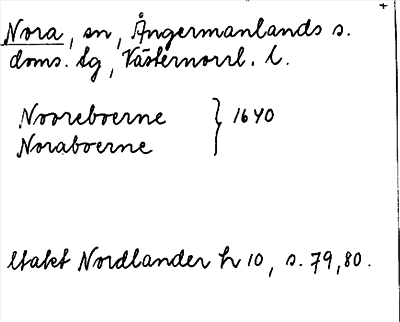 Nora, sn, Ångermanlands s.
doms. tg, Västernorrl. l.
Nooreboerne } 1640
Noraboerne
Utakt Nordlander h 10, s. 79, 80.